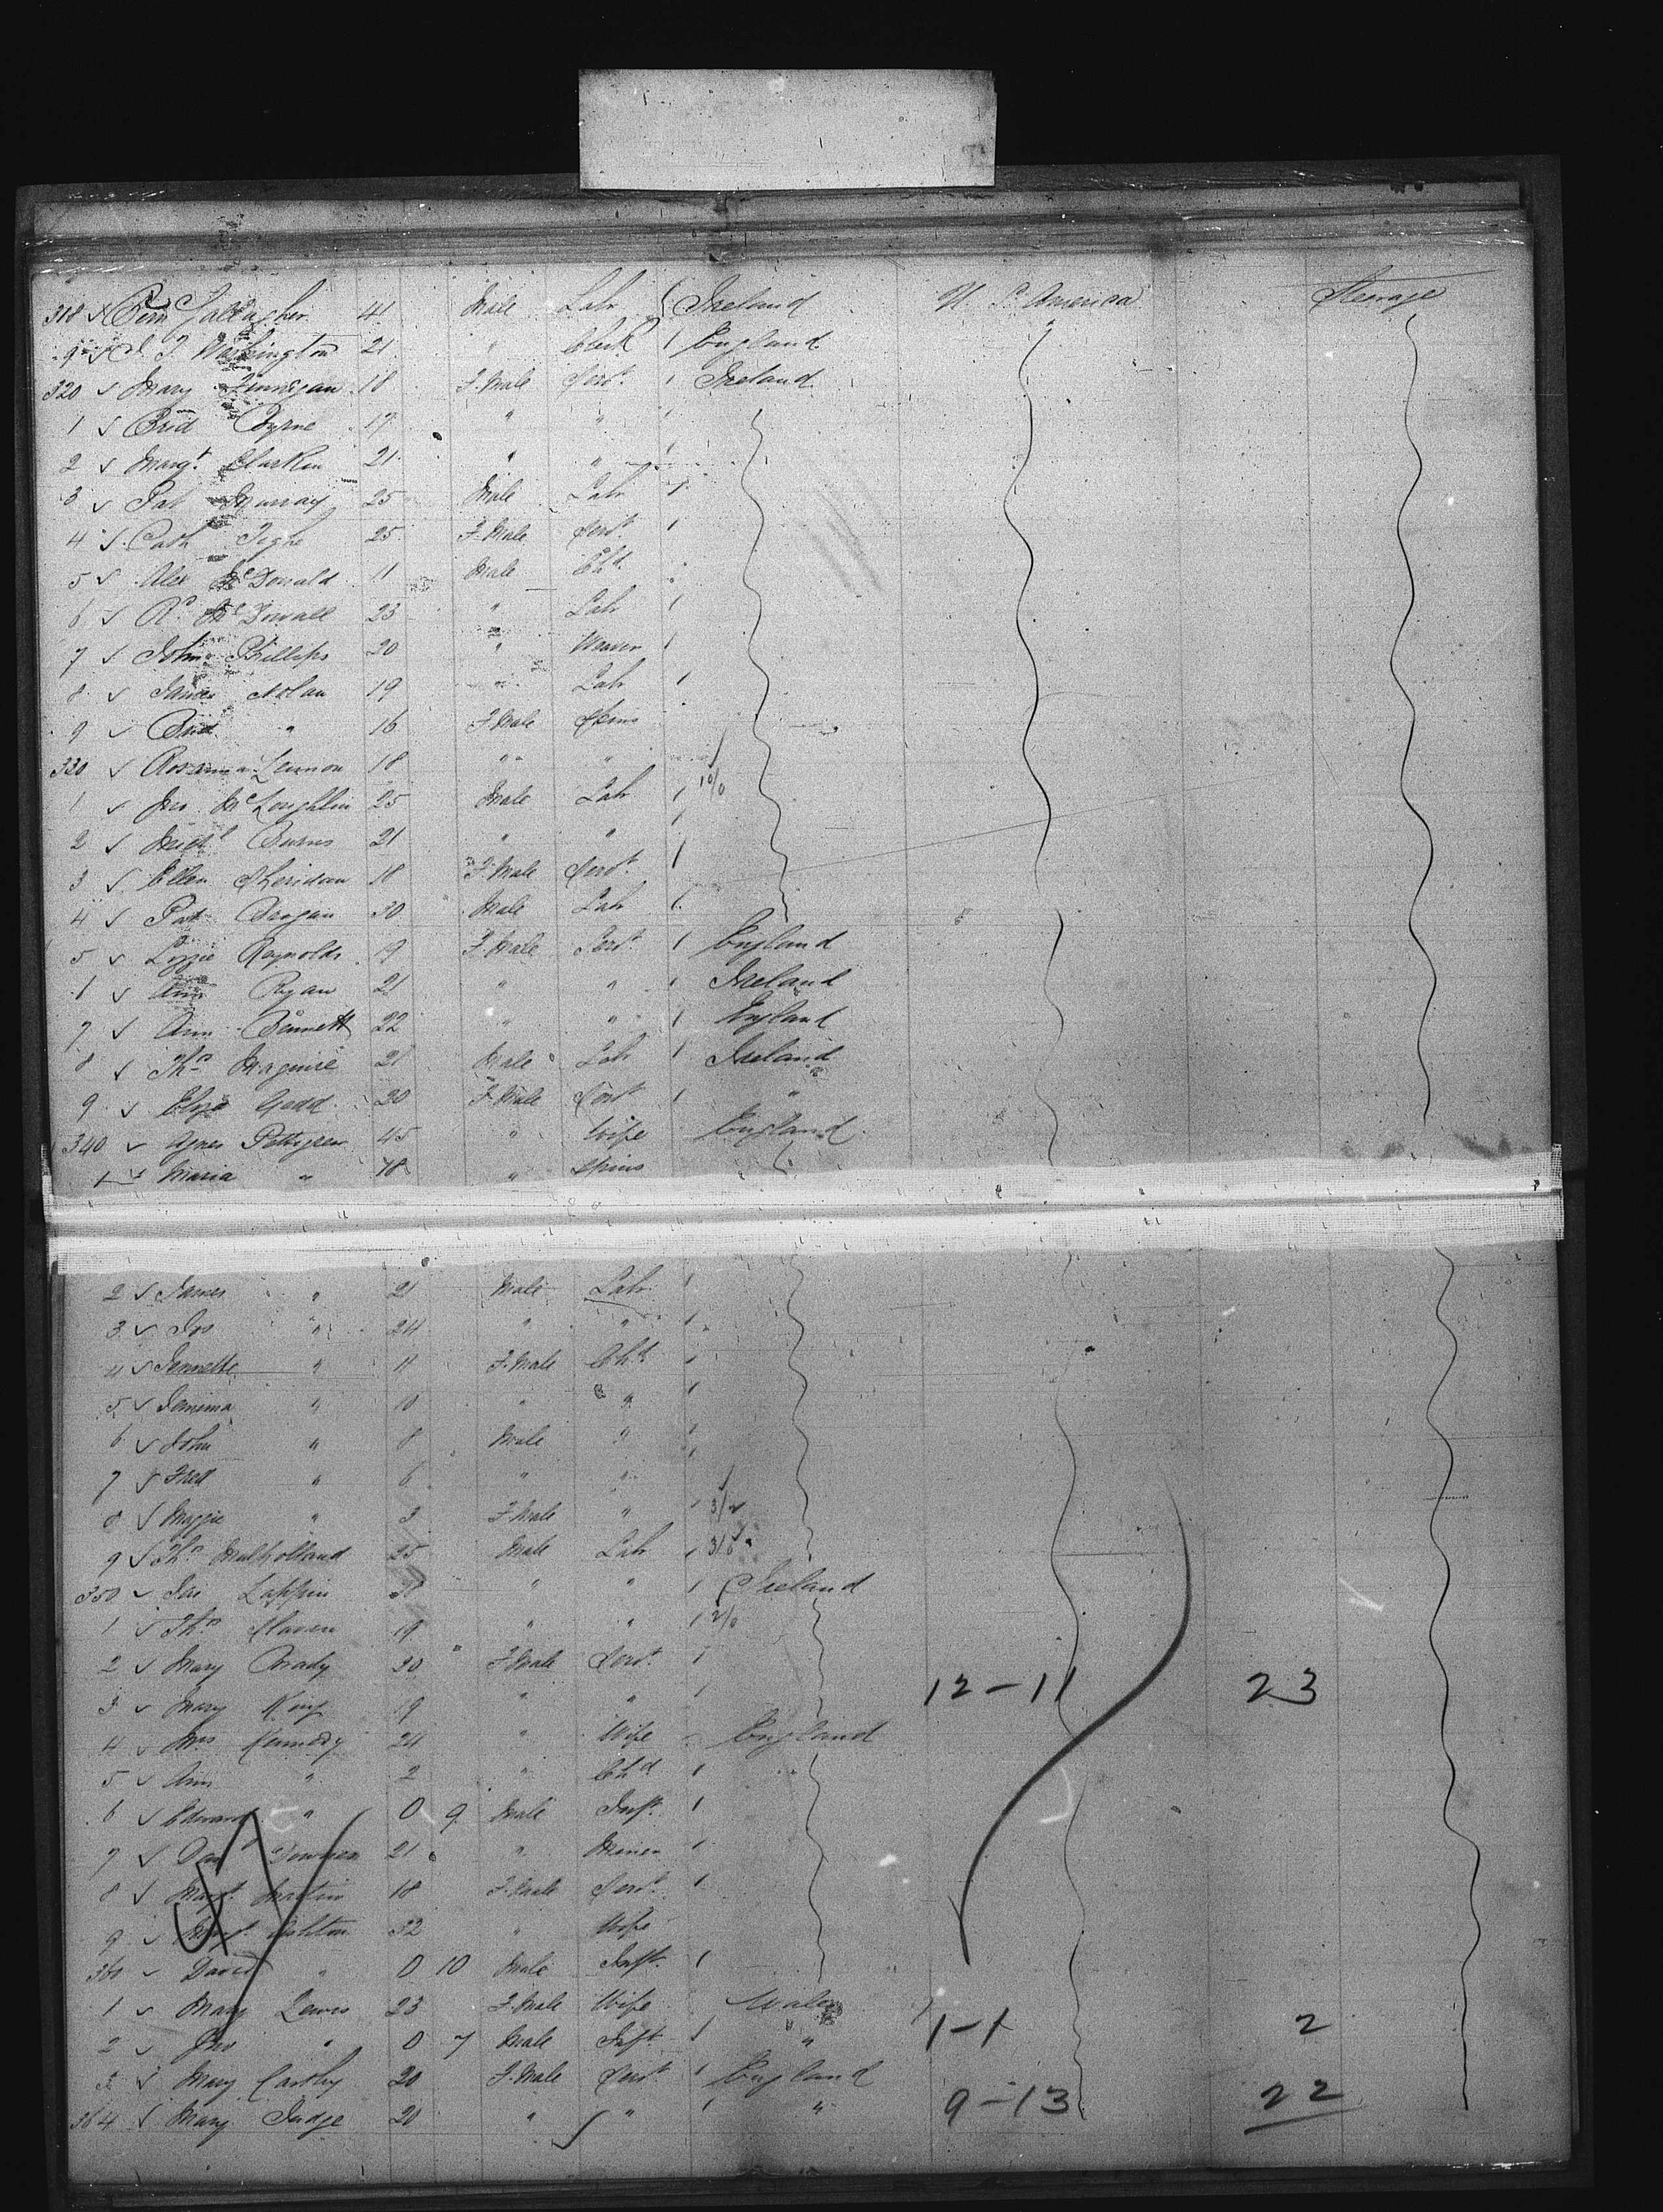 318 Bern Gallagher 41 Male Labr Ireland U. S. America Steerage
9 J. T. Washington 21 " Clerk 1 England
320 Mary Finnigan 18 F. Male Servt 1 Ireland
1 Brid Byrne 17 " " 1
2 Margt Clarkin 21 " " 1
3 Pat Murray 25 Male Labr 1
4 Cath Tighe 25 F. Male Servt 1
5 Alex McDonald 11 Male Chd
6 Rd McDowall 23 " Labr 1
7 John Phillips 20 " Weaver 1
8 James Nolan 19 " Labr 1
9 Brid " 16 F. Male Spins
330 Rosanna Lennon 18 " "
1 Jno McLoughlin 25 Male Labr 1 10/0
2 Michl Burns 21 " " 1
3 Ellen Sheridan 18 F. Male Servt 1
4 Pat Brogan 30 Male Labr 1
5 Lizzie Reynolds 19 F. Male Servt 1 England
Ann Ryan 21 " " 1 Ireland
7 Ann Bennett 22 " " 1 England
8 Ths Maguire 21 Male Labr 1 Ireland
9 Eliza Gadd 20 F. Male Servt 1 "
340 Agnes Pettigrew 45 " Wife England
1 Maria " 18 " Spins
2 James " 21 Male Labr 1
3 Jos " 24 " " 1
4 Jennette " 11 F. Male Chd 1
5 Jemima " 10 " " 1
6 John " 8 Male " 1
7 Fred " 6 " "
8 Maggie " 3 F. Male " 1
9 Ths Mulholland 25 Male Labr 1
350 Jas Lappin " " 1 Ireland
1 Ths 19 " " 1 2/0
2 Mary Brady 30 F. Male Servt 1
3 Mary King 19 " " 1 12-11 23
4 Mrs Kennedy 24 " Wife England
5 Ann " 2 " Chd 1
6 Edward " 0 9 Male Inft 1
7 21 " Miner 1
8 Margt Martin 18 F. Male Servt 1
9 Ashton 32 " Wife
360 David " 0 10 Male Inft 1
1 Mary Lewis 23 F. Male Wife Wales
2 Jno " 0 7 Male Inft 1 " 1-1 2
3 Mary Carthy 20 F. Male Servt 1 England
364 Mary Judge 20 " " 1 " 9-13 22